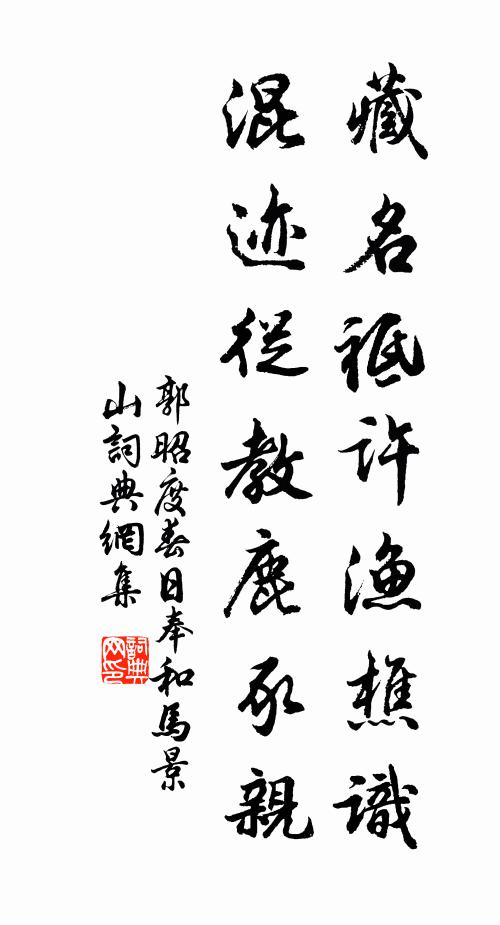 藏名祇许漁樵識
混迹從教鹿豕親
郭昭度春日奉和馬景
山詞典網集
詞典網印